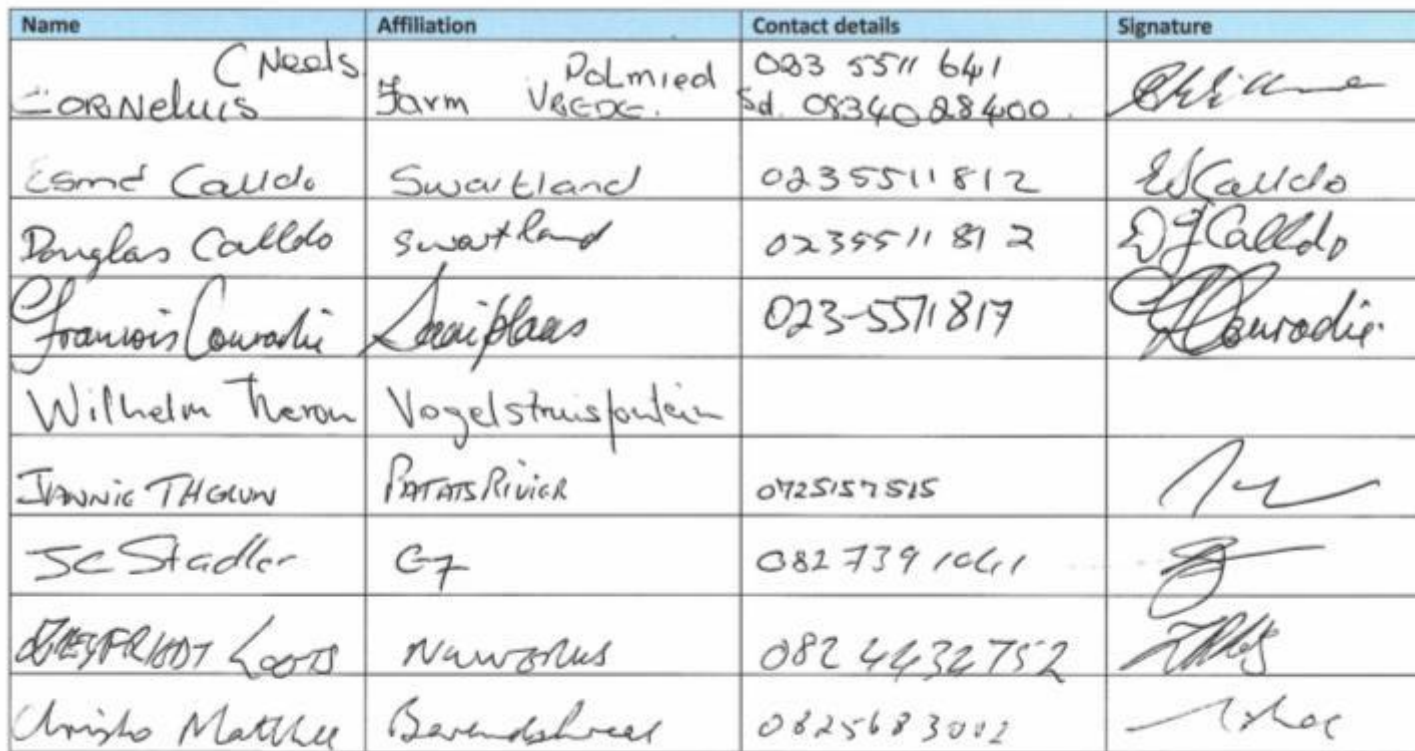 Name Affiliation Contact details Signature
(Neels Palmied 023 5511 641
Corneluis Farm Vrede. Sd. 0834028400.
Esmé Calldo Swartland 0235511812 EJCalldo
Douglas Calldo Swartland 0235511812 DJ Calldo
Francois Conradie 023-5511817 Conradie
Wilhelm Theron Vogelstruisfontein
Jannie Theron Patats Rivier 0725157515
JC Stadler G7
Loots Nuwerus 0824432752
Christo Matthee 0825683002